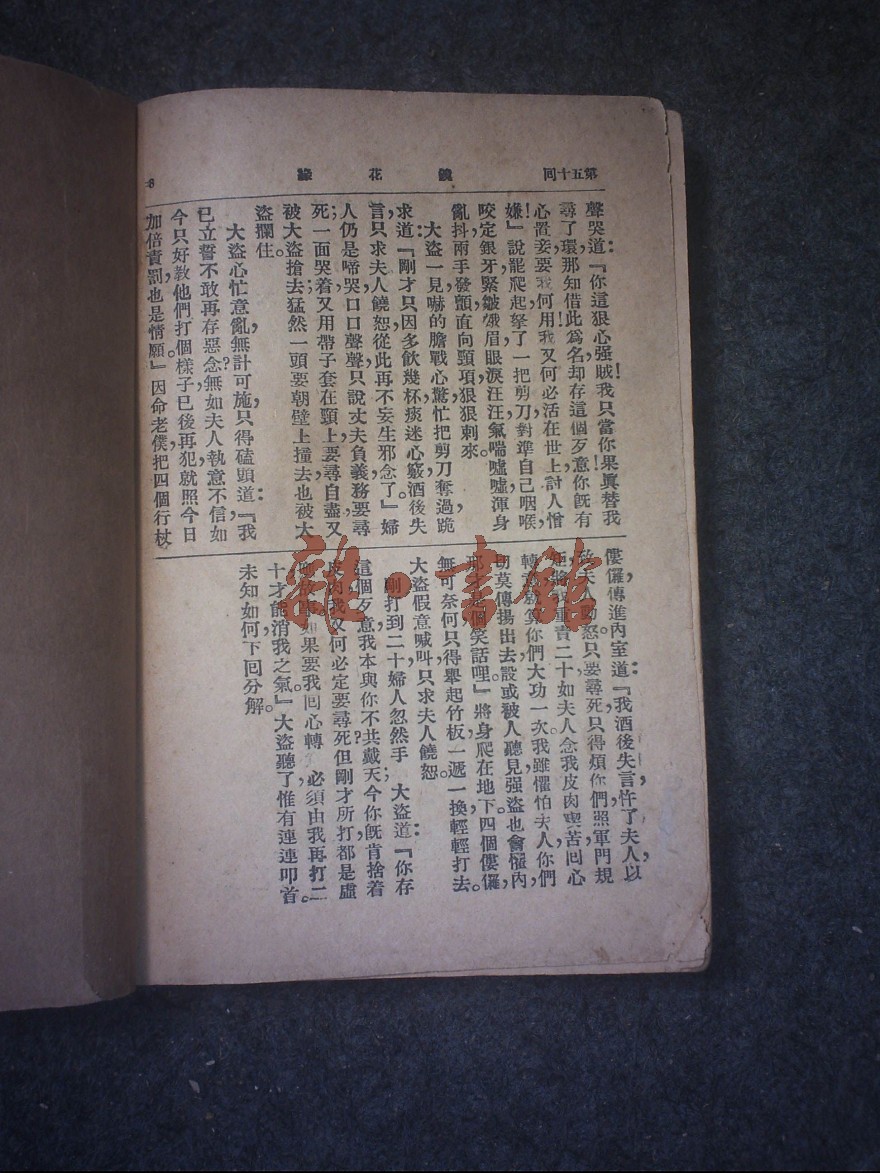 第五十回
鏡花緣
聲哭道：『你這狠心强賊！我只當你果眞替我
尋了環那知借此爲名却存這個歹意！你旣有
心置妾要我何用？我又何必活在世上討人憎
嫌！』說罷爬起拏了一把剪刀對準自己咽喉，
咬定銀牙，緊皺蛾眉，眼淚汪汪，氣喘噓噓，渾身
亂抖，兩手發顫，直向頸項狠狠刺來。
大盜一見嚇的膽戰心驚，忙把剪刀奪過，跪
求道：『剛才只因多飲幾杯，痰迷心竅，酒後失
言，只求夫人饒恕，從此再不妄生邪念了。』婦
人仍是啼哭，口口聲聲，只說丈夫負義，務要尋
死；一面哭着，又用帶子套在頸上要尋自盡，又
被大盜搶去；猛然一頭要朝壁上撞去，也被大
盜攔住。
大盜心忙意亂，無計可施，只得磕頭道：『我
已立誓不敢再存惡念，無如夫人執意不信，如
今只好教他們打個樣子，已後再犯，就照今日
加倍責罰，也是情願』因命老僕把四個行杖
僂儸傳進內室道：『我酒後失言，忤了夫人，以
致夫人動怒，只要尋死，只得煩你們照軍門規
矩，將我重責二十，如夫人念我皮肉喫苦，回心
轉意，就算你們大功一次。我雖懼怕夫人，你們
切莫傳揚出去，設或被人聽見强盜也會懼內，
那才是個笑話哩』將身爬在地下，四個僂儸
無可奈何，只得舉起竹板，一遞一換，輕輕打去。
大盜假意喊叫，只求夫人饒恕。
剛打到二十，婦人忽然手 大盜道：『你存
這個歹意，我本與你不共戴天，今你旣肯捨着
皮肉，我又何必定要尋死？但剛才所打，都是虛
如果要我回心轉 必須由我再打二
十，才能消我之氣。』大盜聽了，惟有連連叩首。
未知如何，下回分解。
雜·書館